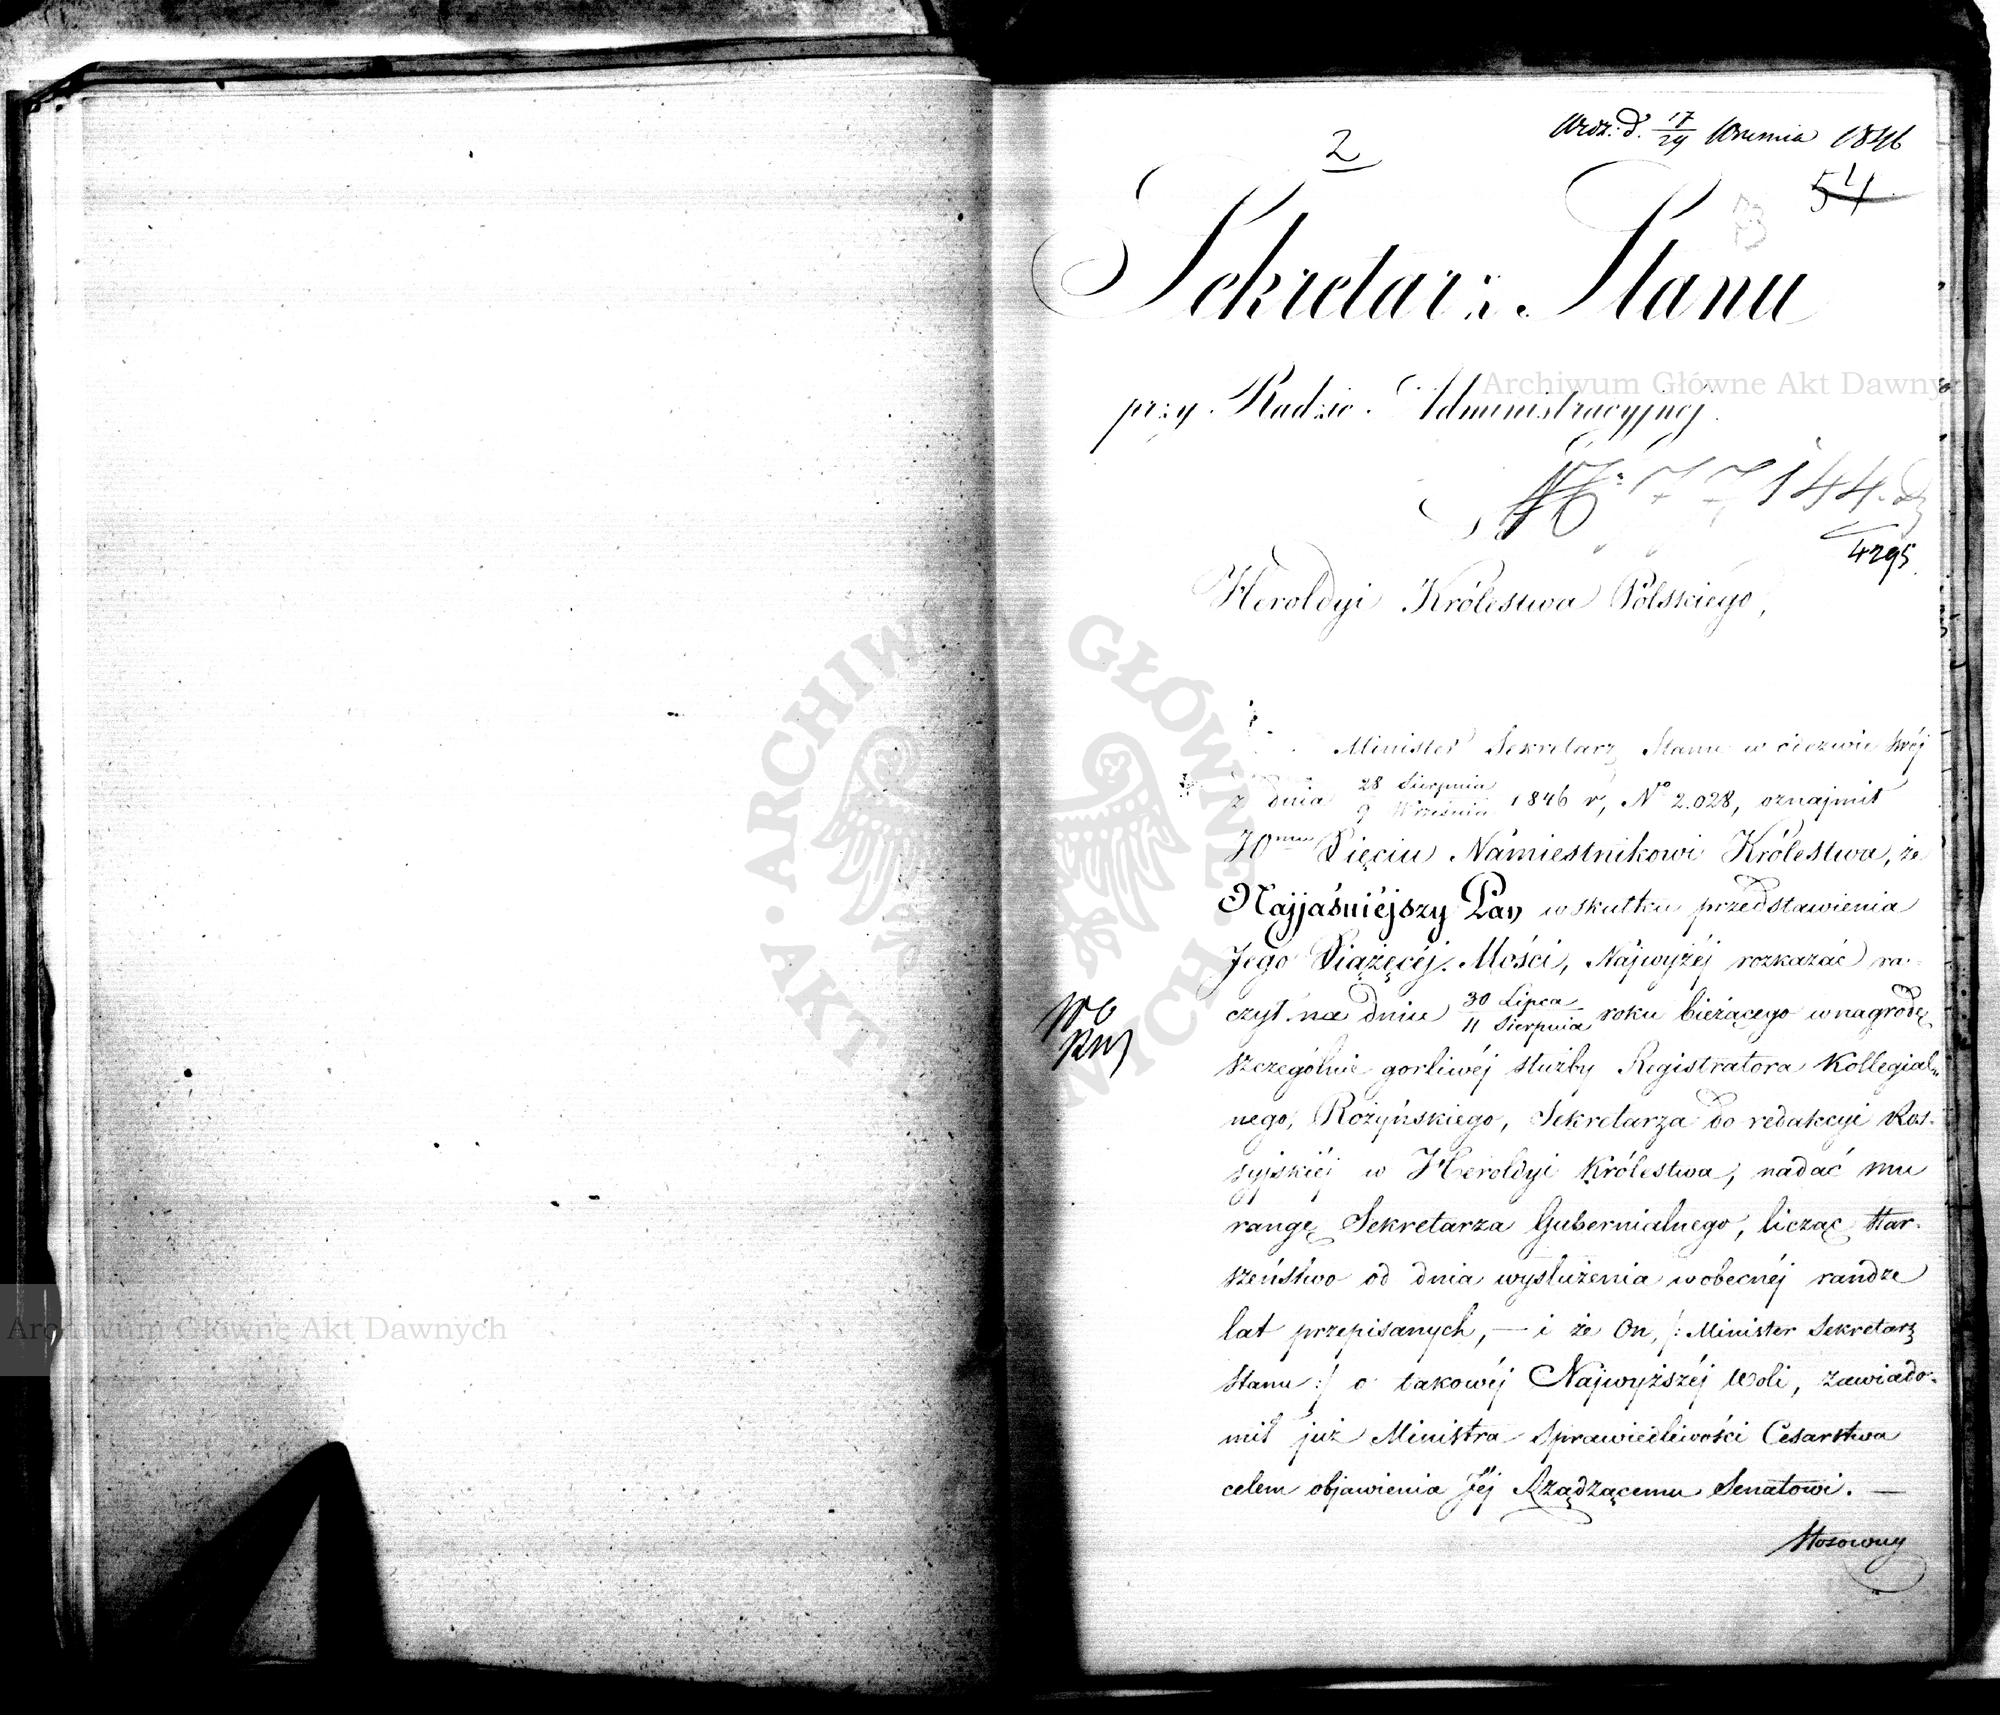 2
d. 17/29 Września 1846
54
Sekretarz Stanu
przy Radzie Administracyjnej.
№ 77144.
4295
Heroldyi Królestwa Polskiego,
Minister Sekretarz Stanu w odezwie swej
z dnia 28 Sierpnia / 9 Września 1846 r, No 2.028, oznajmił
JOmu Xięciu Námiestnikowi Królestwa, że
Najjaśniéjszy Pan w skutku przedstawienia
Jego Xiążęcéj Mości, Najwyżéj rozkazać ra-
czył na dniu 30 Lipca / 11 Sierpnia roku bieżącego w nagrodę
szczególnie gorliwéj służby Registratora Kollegial-
nego, Rożyńskiego, Sekretarza do redakcyi Ros-
syjskiéj w Heroldyi Królestwa, nadać mu
rangę Sekretarza Gubernialnego, licząc star-
szeństwo od dnia wysłużenia w obecnéj randze
lat przepisanych, — i że On, /: Minister Sekretarz
Stanu :/ o takowéj Najwyższéj Woli, zawiado-
mił już Ministra Sprawiedliwości Cesarstwa
celem objawienia Jéj Rządzącemu Senatowi. —
Stosowny
Archiwum Główne Akt Dawnych
Archiwum Główne Akt Dawnych
ARCHIWUM GŁÓWNE AKT DAWNYCH